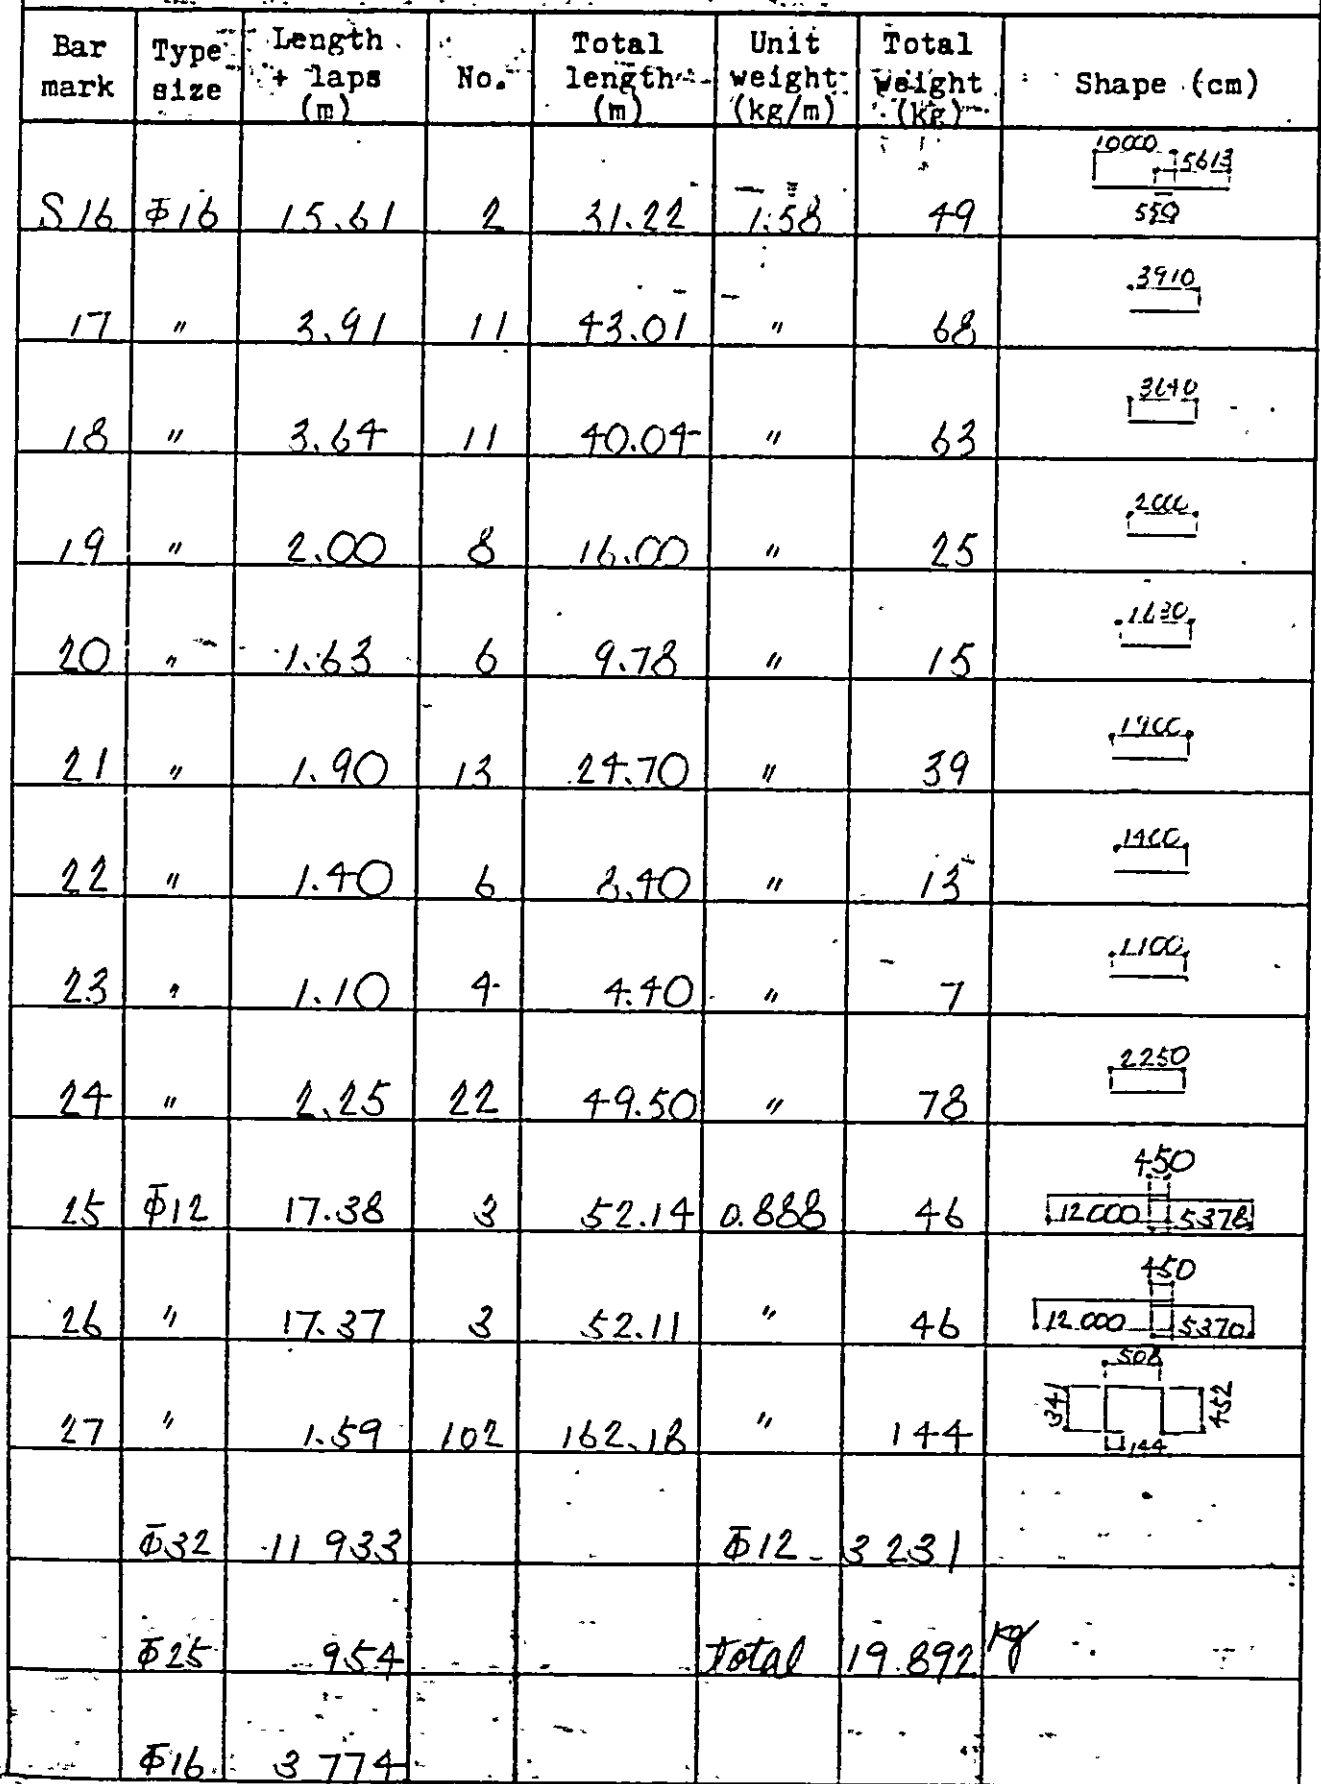 Bar mark Type size Length + laps (m) No. Total length (m) Unit weight (kg/m) Total weight (kg) Shape (cm)
10000 5613
S16 Φ16 15.61 2 31.22 1.58 49 550
3910
17 " 3.91 11 43.01 " 68
3640
18 " 3.64 11 40.04 " 63
2000
19 " 2.00 8 16.00 " 25
1630
20 " 1.63 6 9.78 " 15
1900
21 " 1.90 13 24.70 " 39
1400
22 " 1.40 6 8.40 " 13
1100
23 " 1.10 4 4.40 " 7
2250
24 " 2.25 22 49.50 " 78
450
25 Φ12 17.38 3 52.14 0.888 46 12000 5378
450
26 " 17.37 3 52.11 " 46 12.000 5370
508
341 452
27 " 1.59 102 162.18 " 144 144
Φ32 11 933 Φ12 3 231
Φ25 954 Total 19.892 kg
Φ16 3 774